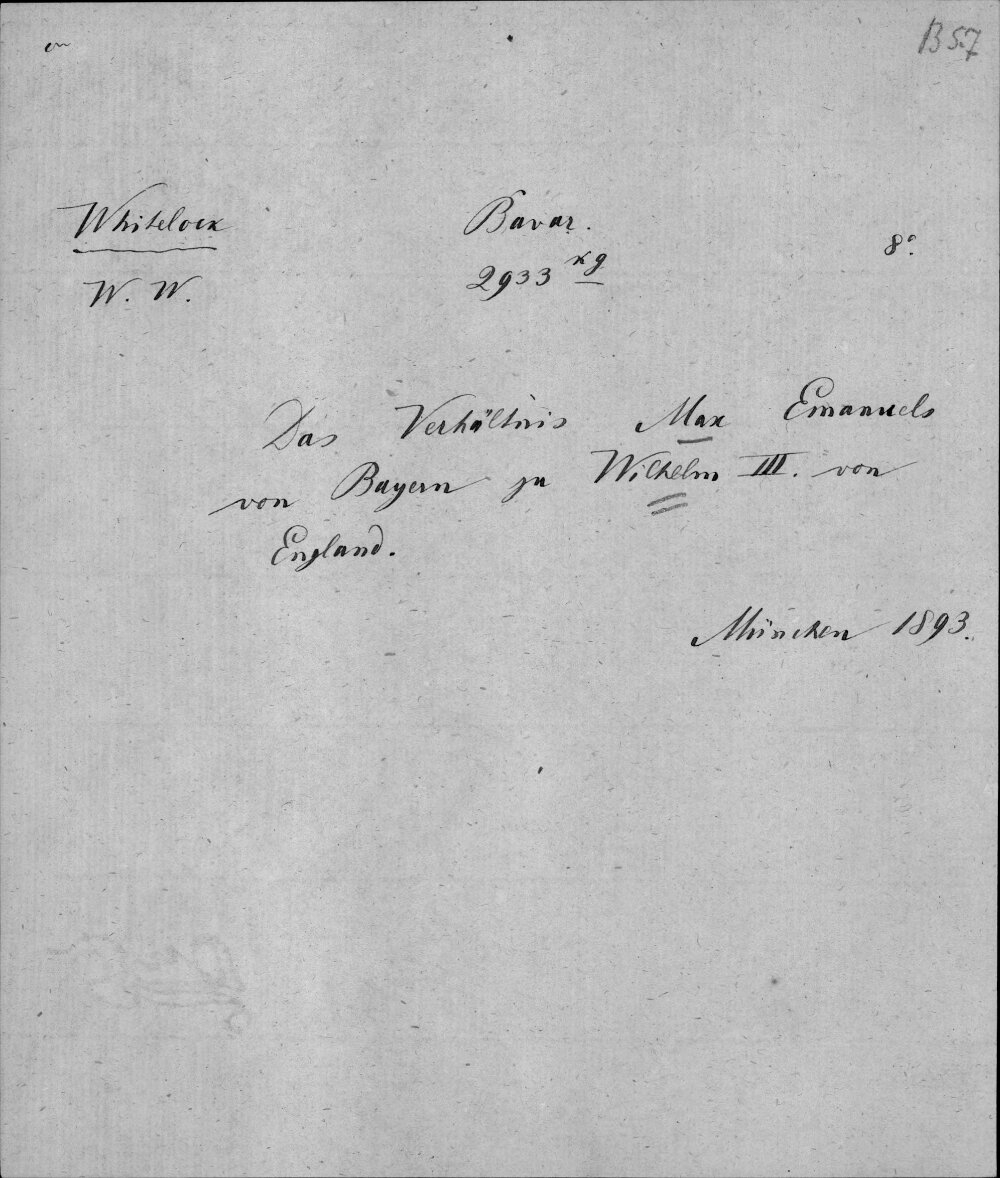 B 57
Whitelock
Bavar.
8°.
W. W.
2933 xg
Das Verhältnis Max Emanuels
von Bayern zu Wilhelm III. von
England.
München 1893.